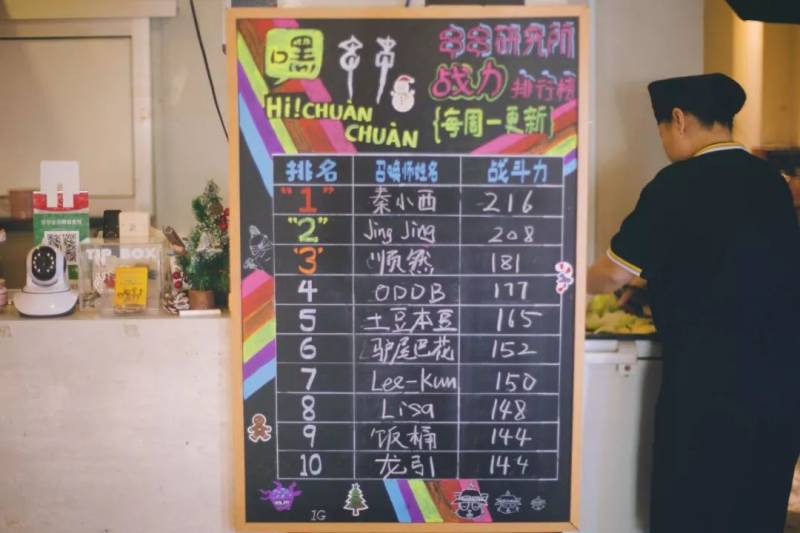 嘿串串
Hi! CHUÀN
CHUÀN
串串研究所
战力排行榜
{每周一更新}
排名 召唤师姓名 战斗力
"1" 秦小西 216
"2" Jing Jing 208
"3" 顺然 181
4 ODDB 177
5 土豆本豆 165
6 驴尾巴花 152
7 Lee-Kun 150
8 Lisa 148
9 饭桶 144
10 龙引 144
IG
TIP BOX